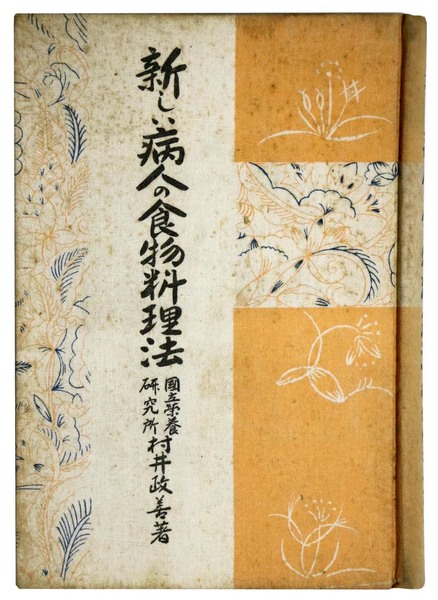 新しい病人の食物料理法
國立栄養
研究所
村井政善著